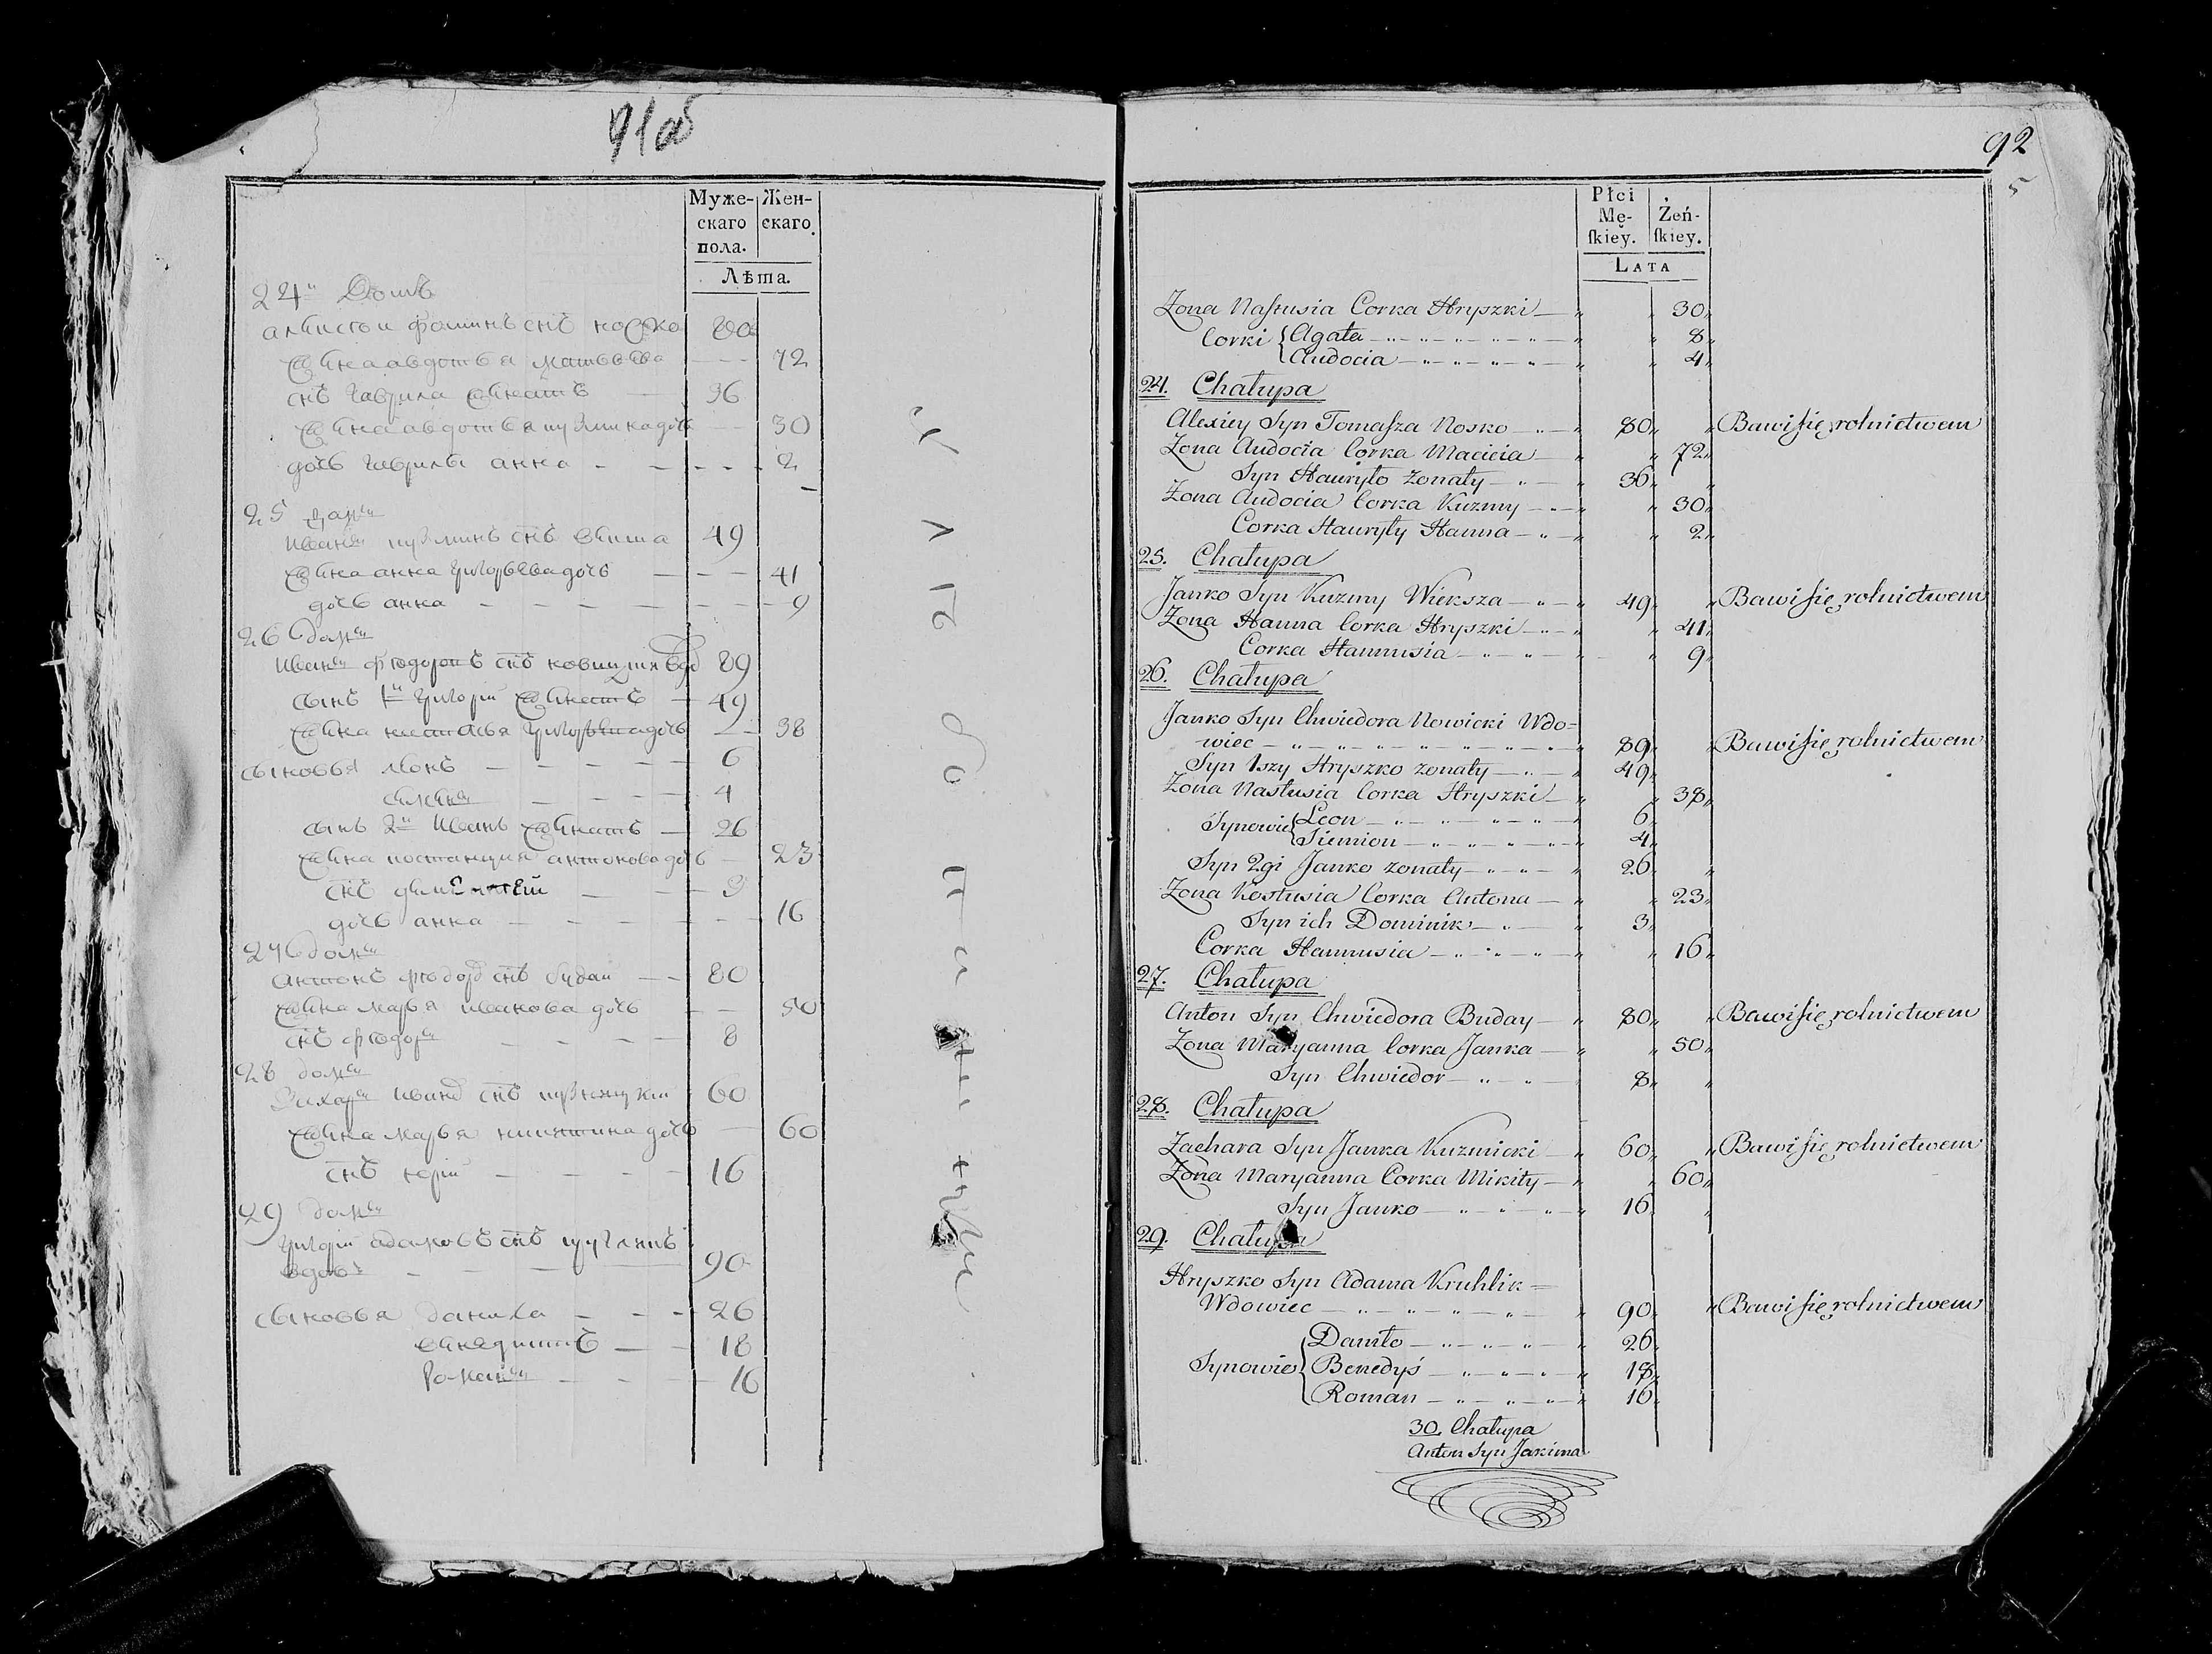 91об
Муже- Жен-
скаго скаго.
пола.
Лѣта.
24й Домъ
Алексѣй Фоминъ снъ носко 80
жена авдотья матвеева 72
снъ Гаврила женатъ — 36
жена авдотья кузмина дочь — 30
дочь Гаврилы анна - - - - - 2
25 дом
Иван кузминъ снъ 49
жена анна Григорьева дочь — - - 41
дочь анна - - - - - - - 9
26 дом
Иван Федоровъ снъ новицки вдо 89
сынъ 1й Григорій женатъ — 49
жена настасья дочь - - 38
сыновья Леонъ - - - - - 6
семен - - - - 4
сынъ 2й Иванъ женатъ — 26
жена костанция антонова дочь — 23
снъ - - - 3
дочь анна - - - - - - - 16
27 дом
антонъ федор снъ будай - - 80
жена марья иванова дочь - - 50
снъ Федор - - - - 8
28 дом
Захар иван снъ 60
жена марья никитина дочь — 60
снъ - - - - 16
29 дом
Григорій адамовъ снъ
вдовъ - - - 90
сыновья данила - - - 26
— - 18
Роман - - - 16
92
5
Płci Żeń-
Mę- ſkiey.
ſkiey.
LATA
Zona Naſtusia Corka Hryszki — 30
Corki { Agata — 8
Audocia — 4
24. Chałupa
Alexiey Syn Tomaſza Nosko — 80 Bawi ſię rolnictwem
Zona Audocia Corka Macieia — 72
Syn Hauryło zonaty — 36
Zona Audocia Corka Kuzmy — 30
Corka Hauryły Hanna — 2
25. Chałupa
Janko Syn Kuzmy Wieksza — 49 Bawi ſię rolnictwem
Zona Hanna Corka Hryszki — 41
Corka Hannusia — 9
26. Chałupa
Janko Syn Chwiedora Nowicki Wdo=
wiec — 89 Bawi ſię rolnictwem
Syn 1szy Hryszko zonaty — 49
Zona Nastusia Corka Hryszki — 38
Synowie { Leon — 6
Siemion — 4
Syn 2gi Janko zonaty — 26
Zona Kostusia Corka Antona — 23
Syn ich Dominik — 3
Corka Hannusia — 16
27. Chałupa
Anton Syn Chwiedora Buday — 80 Bawi ſię rolnictwem
Zona Maryanna Corka Janka — 50
Syn Chwiedor — 8
28. Chałupa
Zachara Syn Janka Kuzmicki — 60 Bawi ſię rolnictwem
Zona Maryanna Corka Mikity — 60
Syn Janko — 16
29. Chałupa
Hryszko Syn Adama Kruhlik =
Wdowiec — 90 Bawi ſię rolnictwem
Daniło — 26
Synowie { Benedyś — 18
Roman — 16
30. Chałupa
Anton Syn Jakima